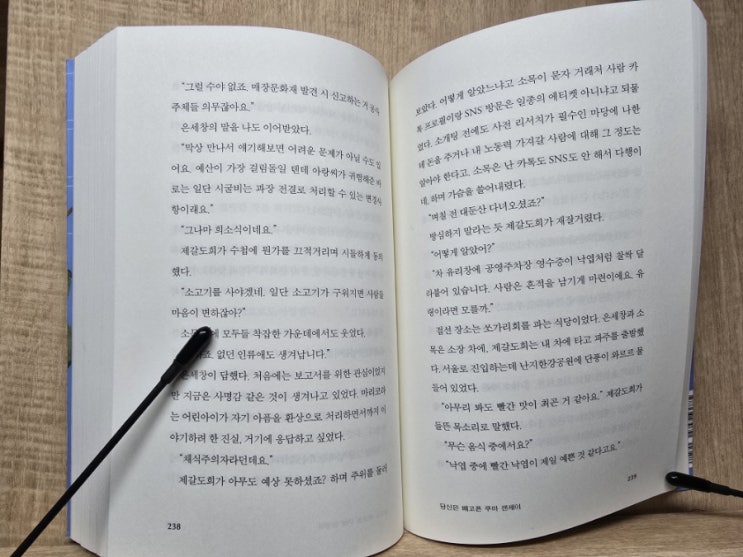 “그럴 수야 없죠. 매장문화재 발견 시 신고하는 거 공사
주체들 의무잖아요.”
은세창의 말을 나도 이어받았다.
“막상 만나서 얘기해보면 어려운 문제가 아닐 수도 있
어요. 예산이 가장 걸림돌일 텐데 아랑씨가 귀띔해준 바
로는 일단 시굴비는 과장 전결로 처리할 수 있는 변경사
항이래요.”
“그나마 희소식이네요.”
제갈도희가 수첩에 뭔가를 끄적거리며 시들하게 동의
했다.
“소고기를 사야겠네. 일단 소고기가 구워지면 사람들
마음이 변하잖아?”
모두들 착잡한 가운데에서도 웃었다.
없던 인류애도 생겨납니다.”
은세창이 답했다. 처음에는 보고서를 위한 관심이었지
만 지금은 사명감 같은 것이 생겨나고 있었다. 마리코라
는 어린아이가 자기 아픔을 환상으로 처리하면서까지 이
야기하려 한 진실, 거기에 응답하고 싶었다.
“채식주의자라던데요.”
제갈도희가 아무도 예상 못하셨죠? 하며 주위를 둘러
238
보았다. 어떻게 알았느냐고 소목이 묻자 거래처 사람 카
톡 프로필이랑 SNS 방문은 일종의 에티켓 아니냐고 되물
었다. 소개팅 전에도 사전 리서치가 필수인 마당에 나한
테 돈을 주거나 내 노동력 가져갈 사람에 대해 그 정도는
알아야 한다고. 소목은 난 카톡도 SNS도 안 해서 다행이
네, 하며 가슴을 쓸어내렸다.
“며칠 전 대둔산 다녀오셨죠?”
방심하지 말라는 듯 제갈도희가 재잘거렸다.
“어떻게 알았어?”
“차 유리창에 공영주차장 영수증이 낙엽처럼 찰싹 달
라붙어 있습니다. 사람은 흔적을 남기게 마련이에요. 유
령이라면 모를까.”
점선 장소는 쏘가리회를 파는 식당이었다. 은세창과 소
목은 소장 차에, 제갈도희는 내 차에 타고 파주를 출발했
다. 서울로 진입하는데 난지한강공원에 단풍이 와르르 물
들어 있었다.
“아무리 봐도 빨간 맛이 최곤 거 같아요.” 제갈도희가
들뜬 목소리로 말했다.
“무슨 음식 중에서요?”
“낙엽 중에 빨간 낙엽이 제일 예쁜 것 같다고요.”
당신은 배고픈 쿠마 센세이
239